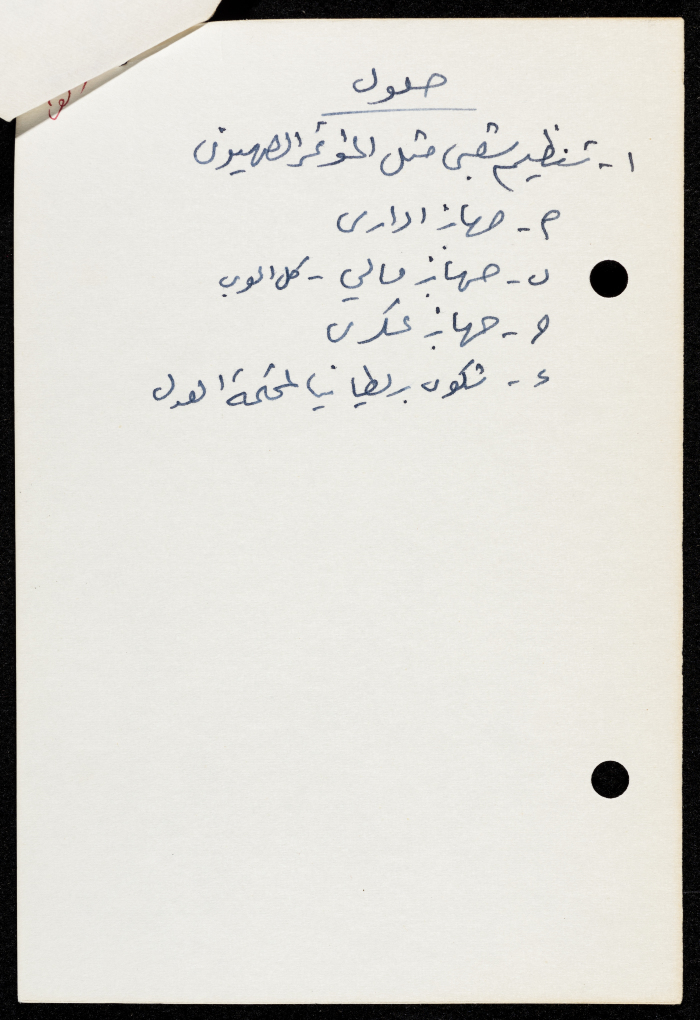 حلول
١- تنظيم شعبي مثل المؤتمر الصهيوني
م- جهاز اداري
ں- جهاز مالي - كل العرب
و- جهاز عسكري
ء- تكون بريطانيا لمحكمة العدل